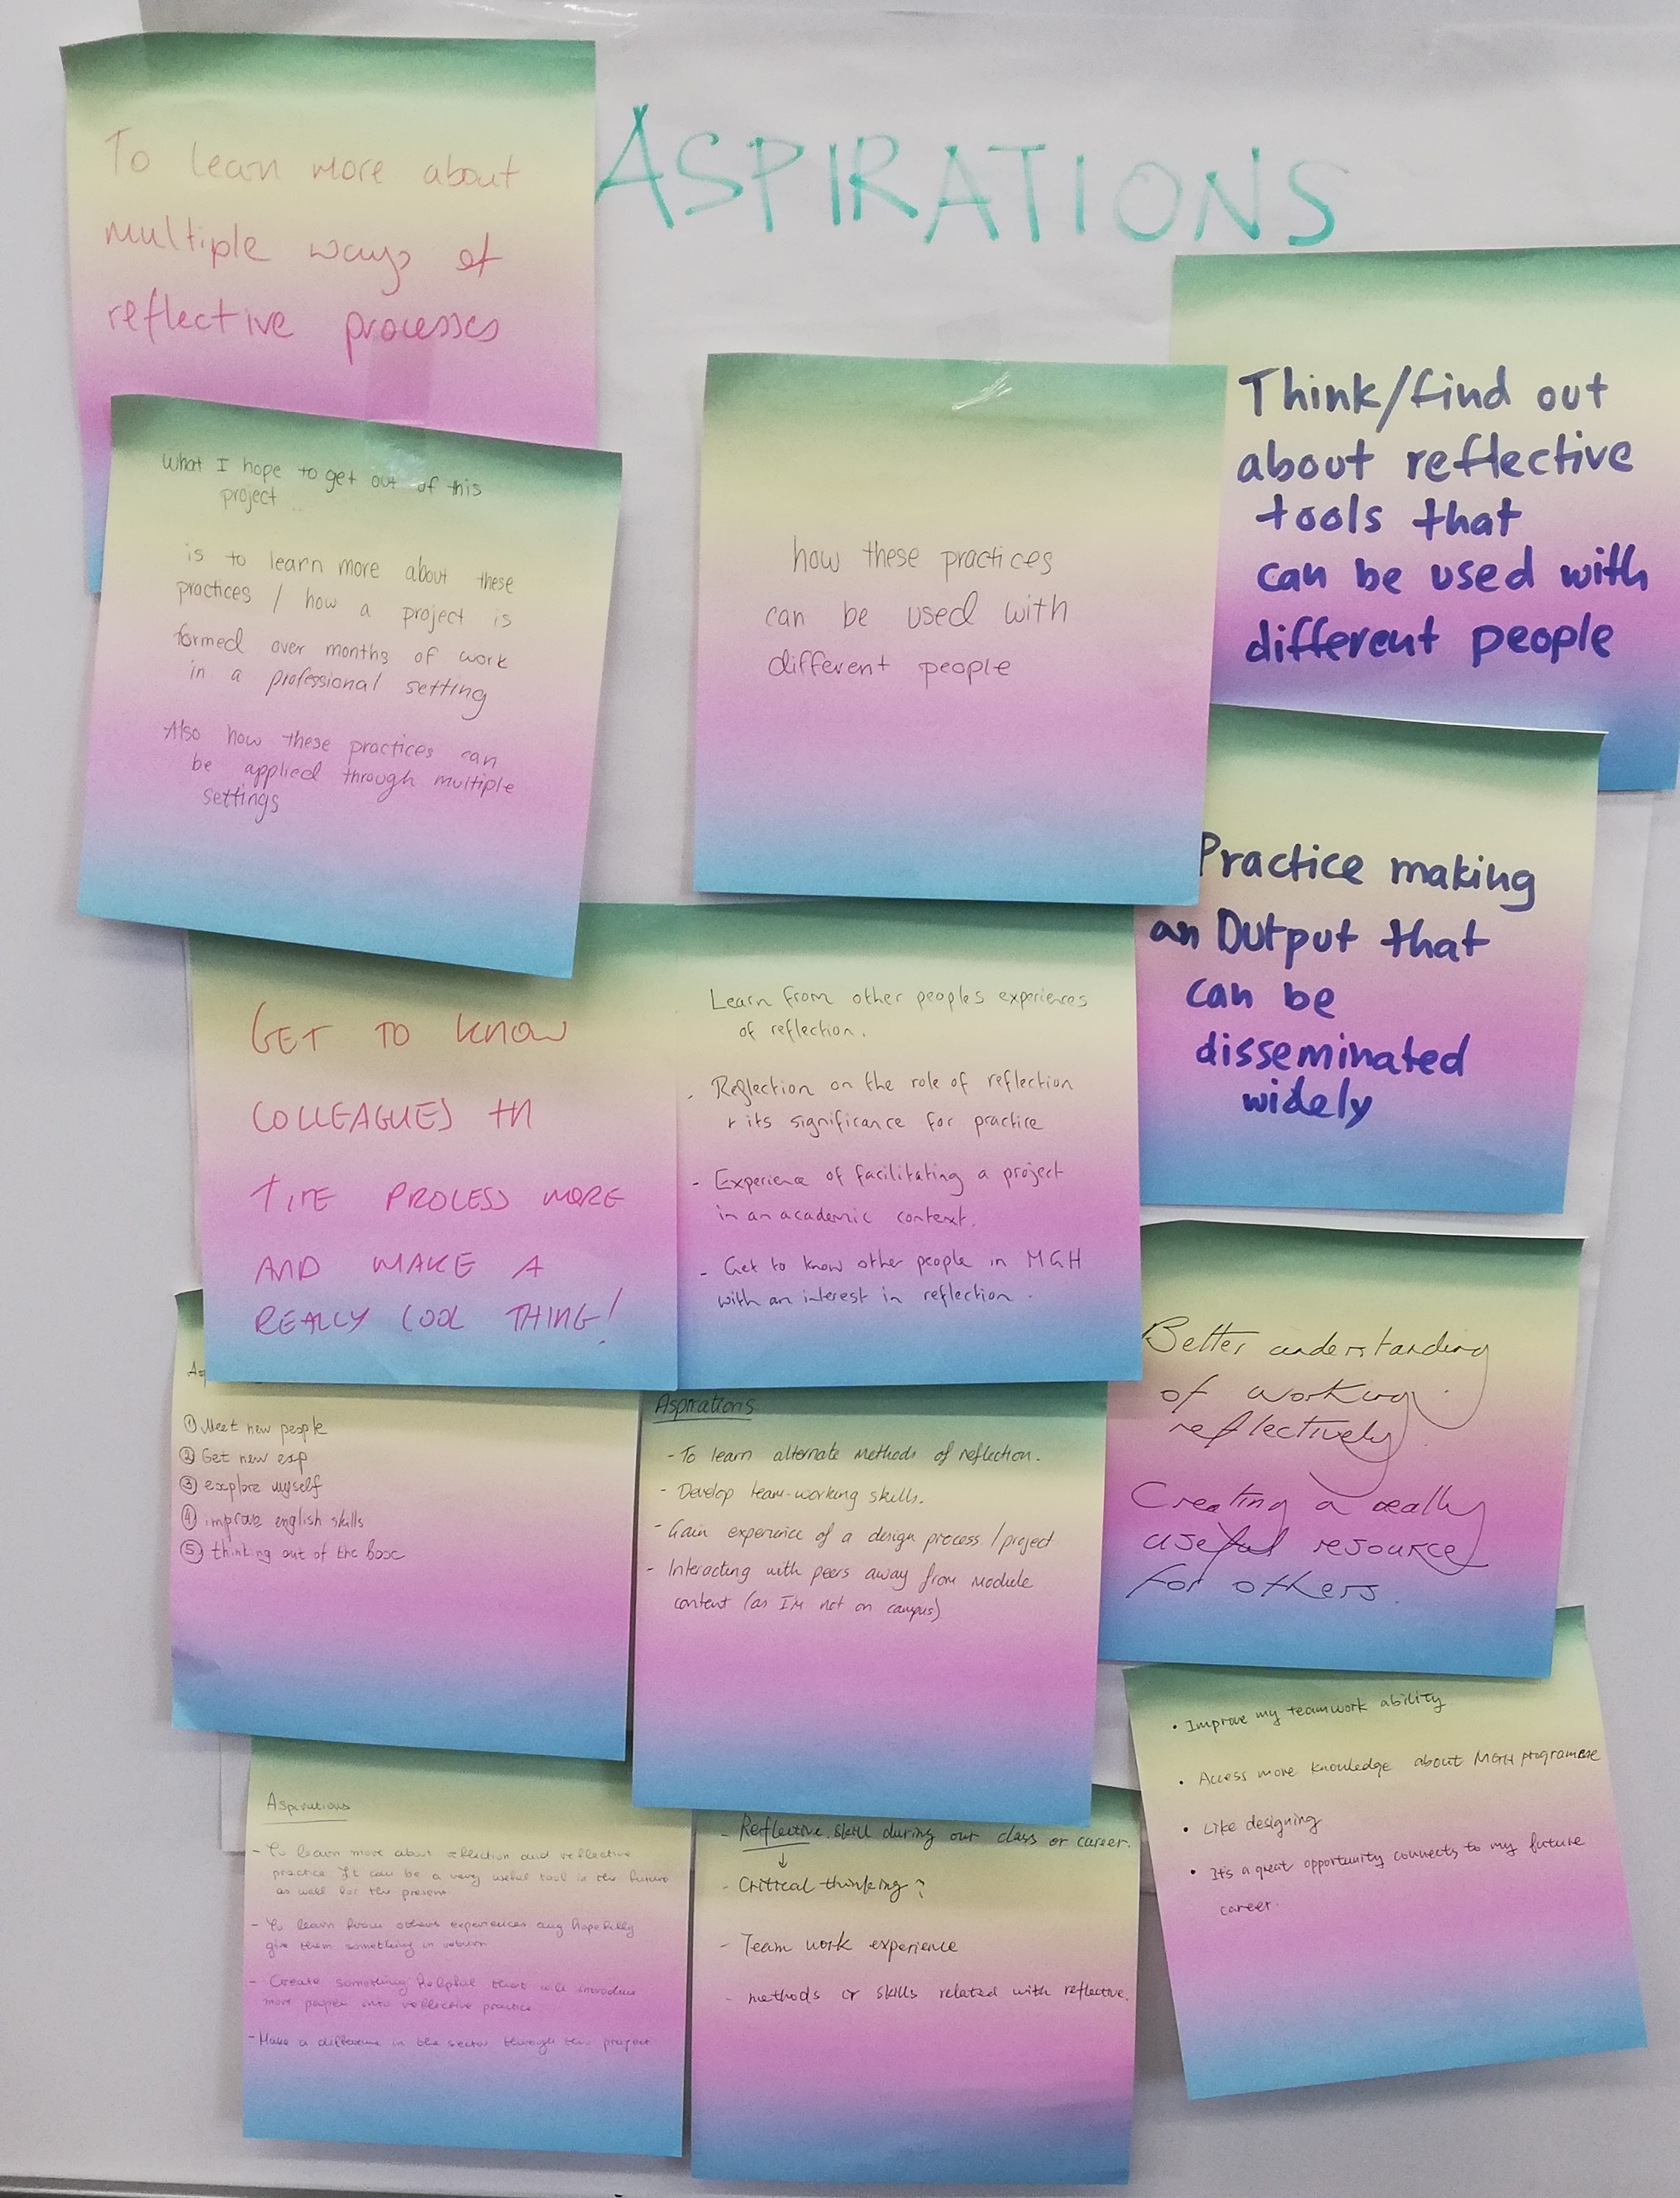 ASPIRATIONS
To learn more about
multiple ways of
reflective processes
What I hope to get out of this
project ..
is to learn more about these
practices / how a project is
formed over months of work
in a professional setting
Also how these practices can
be applied through multiple
settings
how these practices
can be used with
different people
Think/find out
about reflective
tools that
can be used with
different people
Practice making
an Output that
can be
disseminated
widely
GET TO KNOW
COLLEAGUES IN
THE PROCESS MORE
AND MAKE A
REALLY COOL THING!
Learn from other peoples experiences
of reflection.
- Reflection on the role of reflection
+ its significance for practice
- Experience of facilitating a project
in an academic context.
- Get to know other people in MGH
with an interest in reflection.
Better understanding
of working
reflectively
Creating a really
useful resource
for others.
As
① Meet new people
② Get new exp
③ explore myself
④ improve english skills
⑤ thinking out of the box
Aspirations
- To learn alternate methods of reflection.
- Develop team-working skills.
- Gain experience of a design process / project
- Interacting with peers away from module
content (as I'm not on campus)
• Improve my teamwork ability
• Access more knowledge about MGH programme
• Like designing
• It's a great opportunity connects to my future
career.
Aspirations
- To learn more about reflection and reflective
practice It can be a very useful tool in the future
as well for the present
- To learn from others experiences and hopefully
give them something in return
- Create something helpful that will introduce
more people into reflective practice
- Make a difference in the sector through this project
- Reflective skill during our class or career.
↓
- Critical thinking?
- Team work experience
- methods or skills related with reflective.